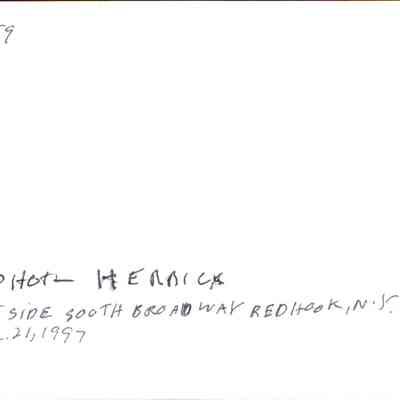 59
HOTEL HERRICK
T SIDE SOUTH BROADWAY RED HOOK, N.Y.
L. 21, 1997